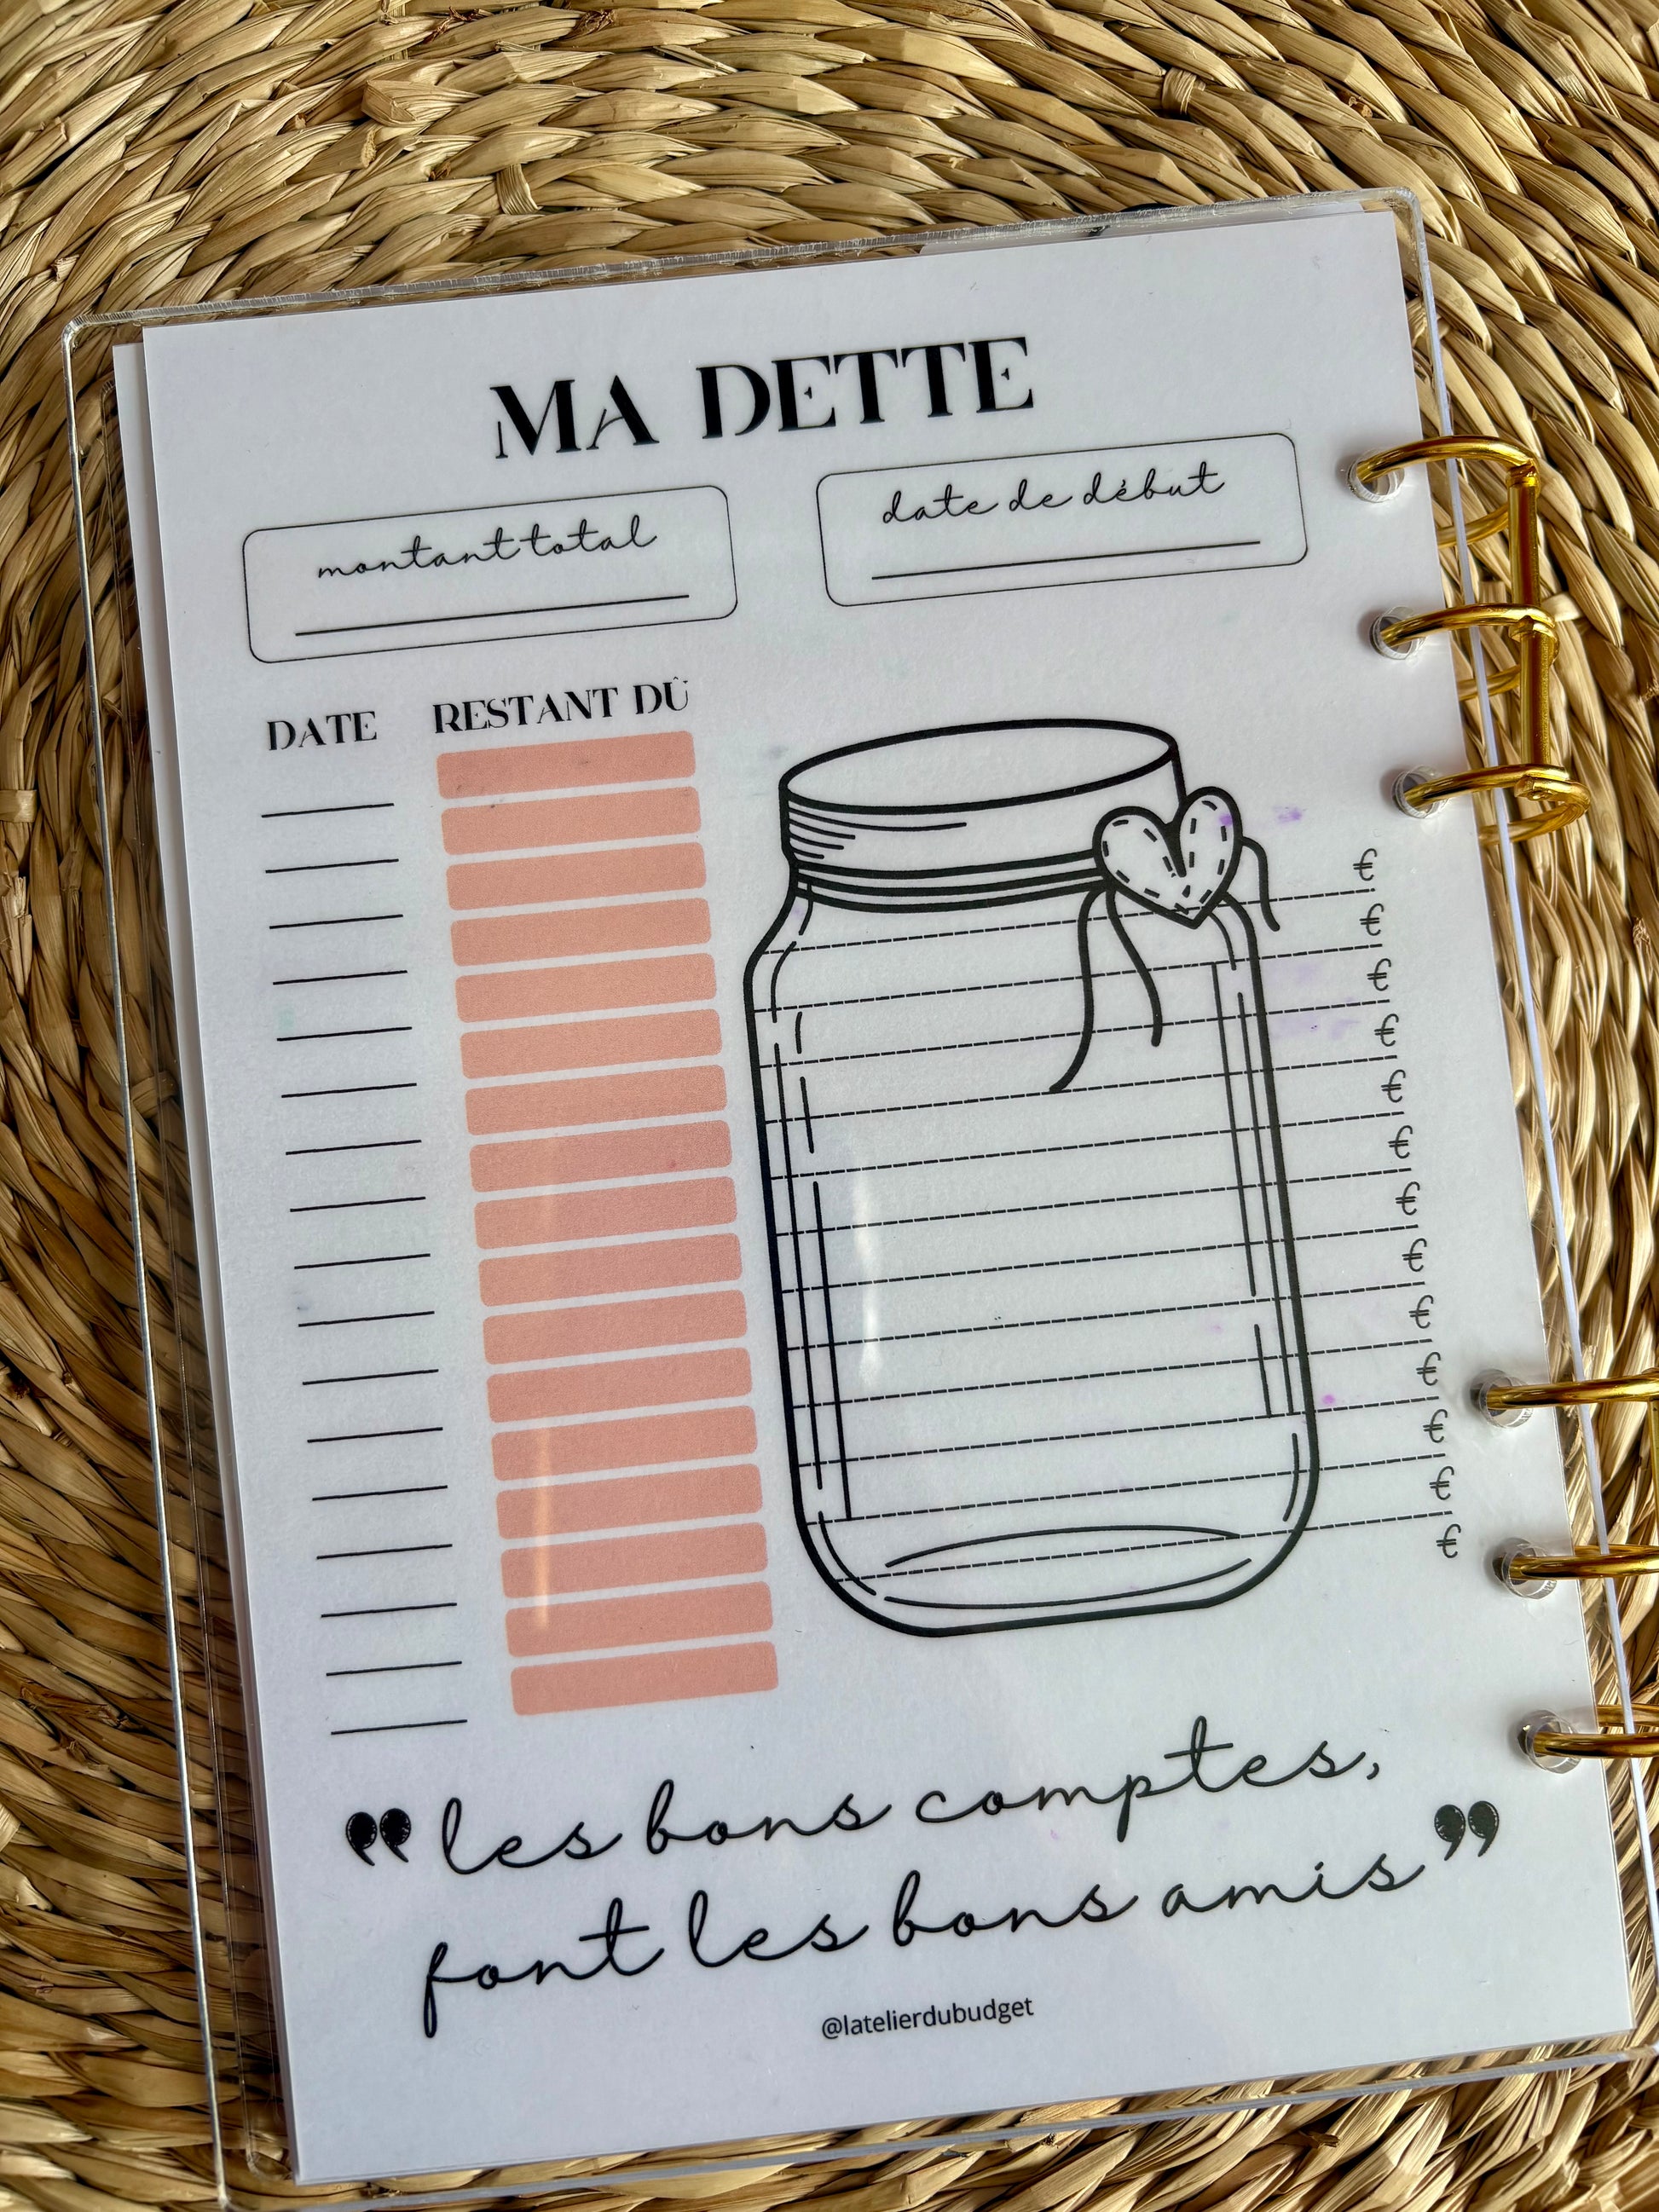 MA DETTE
montant total
date de début
DATE
RESTANT DÛ
€
€
€
€
€
€
€
€
€
€
€
€
€
“les bons comptes,
font les bons amis”
@latelierdubudget